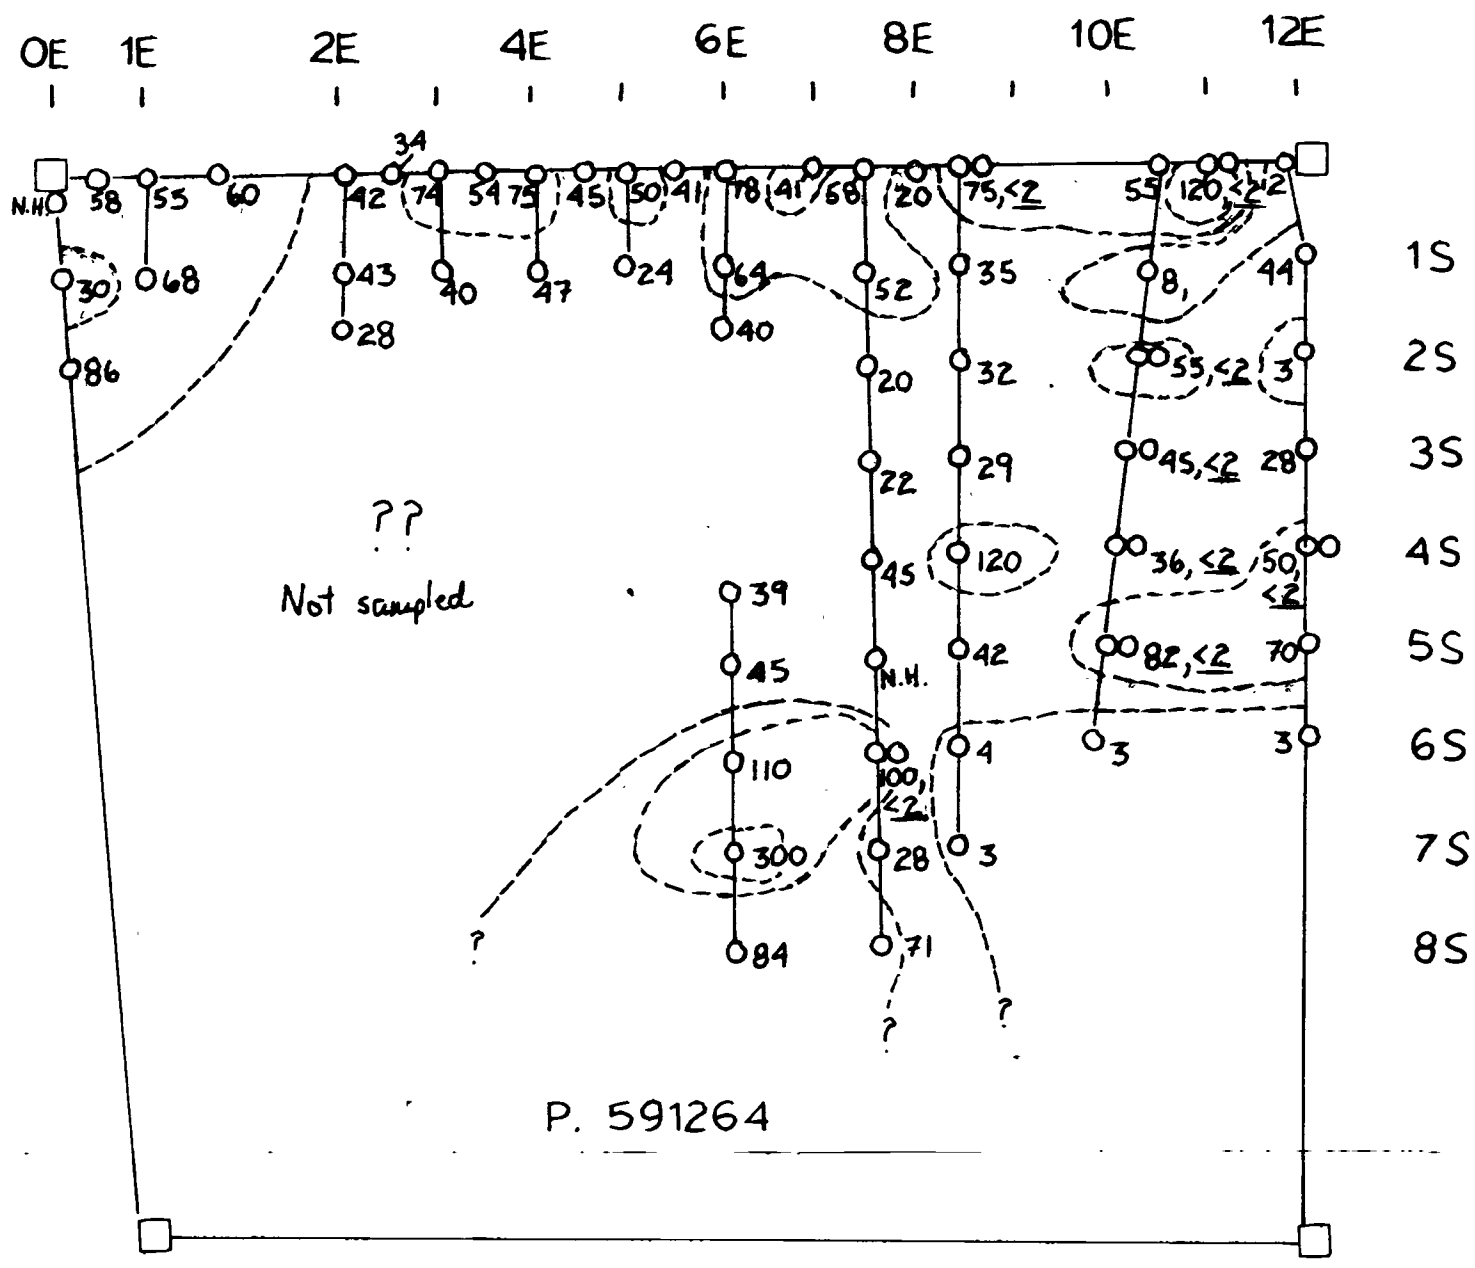 0E 1E 2E 4E 6E 8E 10E 12E
34
N.H. 58 55 60 42 74 54 75 45 50 41 78 41 58 20 75,<2 55 120,<2 12
30 68 43 40 47 24 64 52 35 8, 44 1S
28 40
86 20 32 55,<2 3 2S
22 29 45,<2 28 3S
??
45 120 36,<2 50,<2 4S
Not sampled 39
45 N.H. 42 82,<2 70 5S
110 100,<2 4 3 3 6S
300 28 3 7S
? 84 71 8S
? ?
P. 591264